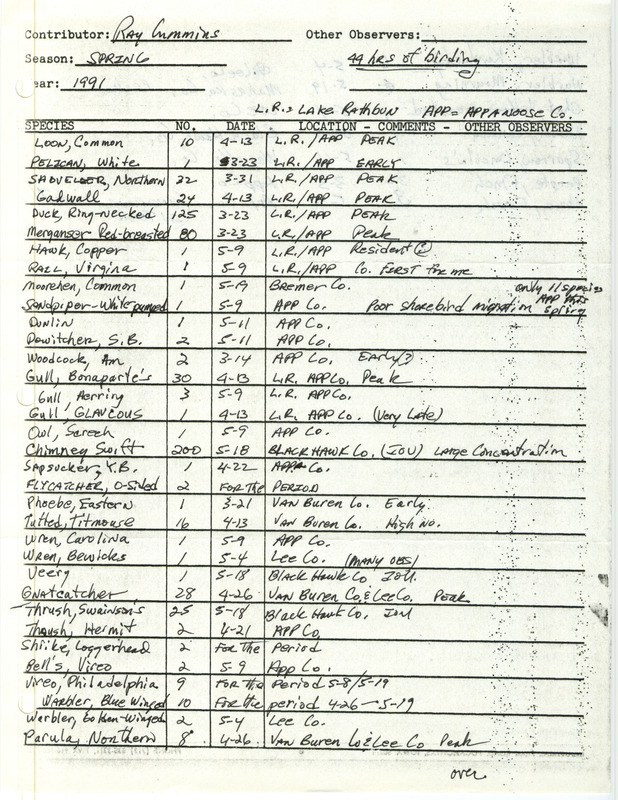 Contributor: Ray Cummins Other Observers:
Season: SPRING 44 hrs of birding
ear: 1991
L.R. = LAKE Rathbun APP = APPANOOSE Co.
SPECIES NO. DATE LOCATION - COMMENTS - OTHER OBSERVERS
Loon, Common 10 4-13 L.R./APP PEAK
PELICAN, White 1 3-23 L.R./APP EARLY
Northern 22 3-31 L.R./APP PEAK
Gadwall 24 4-13 L.R./APP PEAK
Duck, Ring-necked 125 3-23 L.R./APP PEAK
Merganser Red-breasted 80 3-23 L.R./APP Peak
HAWK, Copper 1 5-9 L.R./APP Resident
RAIL, Virginia 1 5-9 L.R./APP Co. FIRST for me
Moorehen, Common 1 5-19 Bremer Co. only 11 species
Sandpiper-White rumped 1 5-9 APP Co. Poor shorebird migration APP this spring
Dunlin 1 5-11 APP Co.
Dowitcher, S.B. 2 5-11 APP Co.
Woodcock, Am 2 3-14 APP Co. Early?
Gull, Bonaparte's 30 4-13 L.R. APP Co. Peak
Gull, Herring 3 5-9 L.R. APP Co.
Gull GLAUCOUS 1 4-13 L.R. APP Co. (Very Late)
Owl, Screech 1 5-9 APP Co.
Chimney Swift 200 5-18 BLACK HAWK Co. (IOU) Large Concentration
Sapsucker, Y.B. 1 4-22 APP Co.
FLYCATCHER, O-Sided 2 FOR The PERIOD
Phoebe, Eastern 1 3-21 VAN Buren Co. Early
Tufted, Titmouse 16 4-13 VAN Buren Co. High No.
Wren, Carolina 1 5-9 APP Co.
Wren, Bewicks 1 5-4 Lee Co. (MANY OBS)
Veery 1 5-18 Black Hawk Co IOU.
Gnatcatcher 28 4-26 VAN Buren Co. & Lee Co. Peak
Thrush, Swainson's 25 5-18 Black Hawk Co. IOU
Thrush, Hermit 2 4-21 APP Co,
Shrike, Loggerhead 2 FOR The Period
Bell's, Vireo 2 5-9 App Co.
Vireo, Philadelphia 9 FOR the Period 5-8/5-19
Warbler, Blue Winged 10 FOR the period 4-26 - 5-19
Warbler, Golden-Winged 2 5-4 Lee Co.
Parula, Northern 8 4-26 VAN Buren Co & Lee Co Peak
over